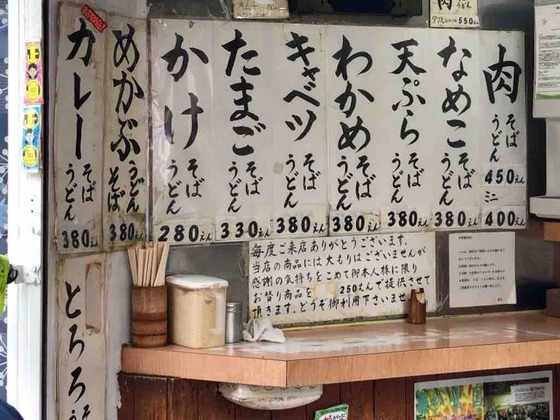 肉うどん
550えん
肉 そば うどん 450えん
ミニ 400えん
なめこ そば うどん 380えん
天ぷら そば うどん 380えん
わかめ そば うどん 380えん
キャベツ そば うどん 380えん
たまご そば うどん 330えん
かけ そば うどん 280えん
めかぶ うどん そば 380えん
カレー そば うどん 380えん
とろろ
毎度ご来店ありがとうございます。
当店の商品には大もりはございませんが
感謝の気持ちをこめて御本人様に限り
お替り商品を 250えんで提供させて
頂きます。どうぞ御利用下さいませ